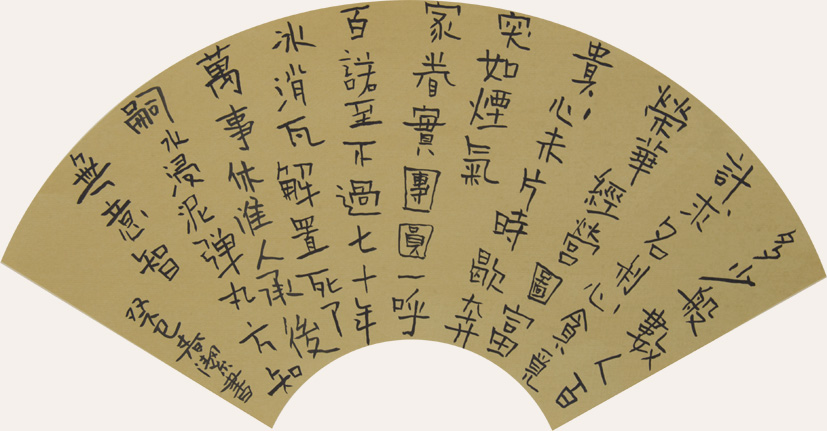 多少般數人百
計求名利心貪覓
榮華經營圖富
貴心未片時歇奔
突如煙氣
家眷實團圓一呼
百諾至不過七十年
冰消瓦解置死了
萬事休誰人承後
嗣水浸泥彈丸方知
無意智
癸巳春書